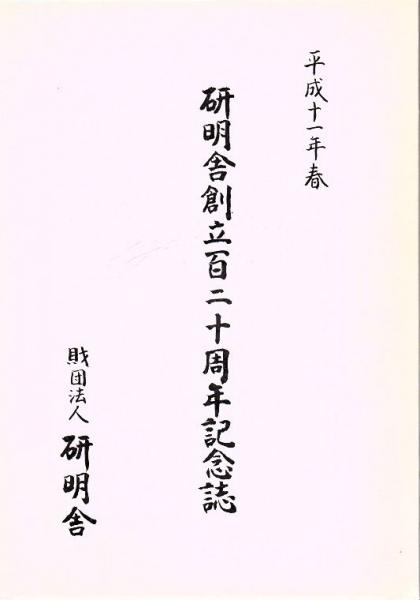 平成十一年春
研明舎創立百二十周年記念誌
財団法人 研明舎